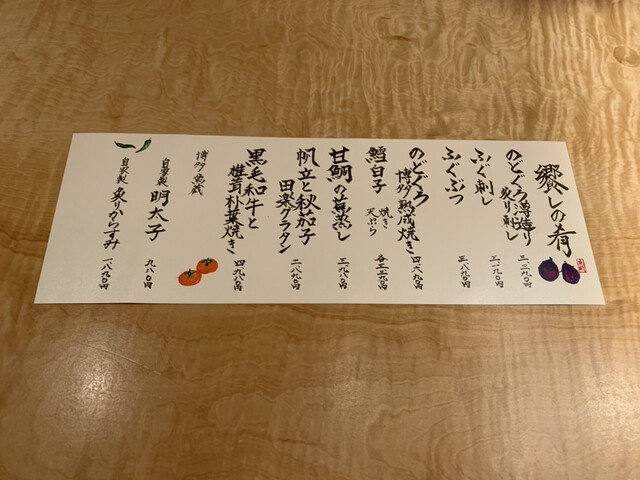 饗しの肴
のどぐろ薄造り
炙り刺し
三、二九〇円
ふぐ刺し
三、一九〇円
ふぐぶつ
三、八九〇円
のどぐろ
博多熟成焼き
四、六九〇円
鱈白子
焼き
天ぷら
各二、二九〇円
甘鯛の蕪蒸し
三、八九〇円
帆立と秋茄子
田楽グラタン
二、八九〇円
黒毛和牛と
椎茸朴葉焼き
四、九八〇円
博多魚蔵
自家製 明太子
九八〇円
自家製 炙りからすみ
一、八九〇円